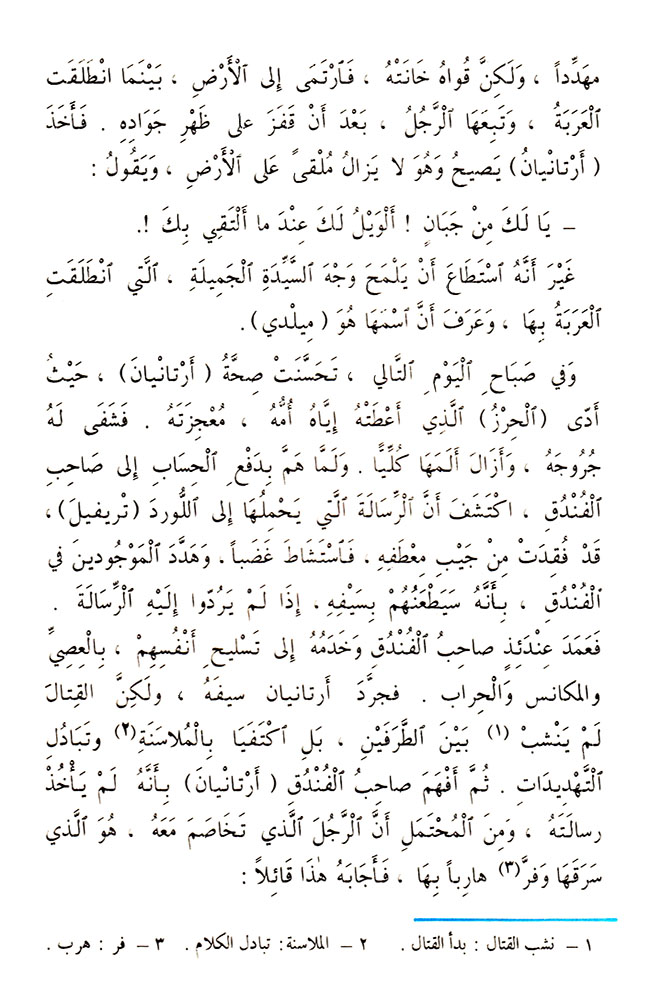 مهَدِّداً ، وَلَكِنَّ قُواهُ خَانَتْهُ ، فَٱرْتَمَى إلى ٱلْأَرْضِ ، بَيْنَمَا ٱنْطَلَقَت
ٱلْعَرَبَةُ ، وَتَبِعَهَا ٱلْرَّجُلُ ، بَعْدَ أَنْ قَفَزَ على ظَهْرِ جَوَادِهِ . فَأَخَذَ
(أَرْتانْيانُ) يَصيحُ وَهُوَ لا يَزالُ مُلْقىً عَلى ٱلْأَرْضِ ، وَيَقُولُ :
– يَا لَكَ مِنْ جَبَانٍ ! أَلْوَيْلُ لَكَ عِنْدَ ما أَلْتَقِي بِكَ !.
غَيْرَ أَنَّهُ ٱسْتَطَاعَ أَنْ يَلْمَحَ وَجْهَ ٱلسَّيِّدَةِ ٱلْجَمِيلَةِ ، ٱلَّتي ٱنْطَلَقَتِ
ٱلْعَرَبَةُ بِهَا ، وَعَرَفَ أَنَّ ٱسْمَهَا هُوَ (مِيلْدي).
وَفي صَبَاحِ ٱلْيَوْمِ ٱلتَّالي ، تَحَسَّنَتْ صِحَّةُ (أَرْتانْيانَ) ، حَيْثُ
أَدّى (ٱلْحِرْزُ) ٱلَّذِي أَعْطَتْهُ إيَّاهُ أُمُّهُ ، مُعْجِزَتَهُ . فَشَفَى لَهُ
جُرُوحَهُ ، وَأَزَالَ أَلَمَهَا كُلِّيًّا . وَلَمَّا هَمَّ بِدَفْعِ ٱلْحِسَابِ إلى صَاحِبِ
ٱلْفُنْدُقِ ، ٱكْتَشَفَ أَنَّ ٱلْرِّسَالَةَ ٱلَّتِي يَحْمِلُهَا إلى ٱللُّورِدَ (تْريفيلَ)،
قَدْ فُقِدَتْ مِنْ جَيْبِ مِعْطَفِهِ ، فَٱسْتَشَاطَ غَضَباً . وَهَدَّدَ ٱلْمَوْجُودينَ في
ٱلْفُنْدُقِ ، بِأَنَّهُ سَيَطْعَنُهُمْ بِسَيْفِهِ، إذَا لَمْ يَرُدّوا إلَيْهِ ٱلْرِّسَالَةَ .
فَعَمَدَ عِنْدَئِذٍ صاحِبُ ٱلْفُنْدُقِ وَخَدَمُهُ إلى تَسْليحِ أَنْفُسِهِمْ ، بِالْعِصِيِّ
والمكانس وَٱلْحِراب . فجرَّدَ أَرتانيان سيفَهُ ، ولَكِنَّ القِتالَ
لَمْ يَنْشبْ (١) بَيْنَ ٱلطَّرَفَيْنِ ، بَلِ ٱكْتَفَيَا بِالْمُلاسَنَةِ(٢) وتَبَادُلِ
ٱلْتَّهْدِيدَاتِ . ثُمَّ أَفْهَمَ صاحِبُ ٱلْفُنْدُقِ (أَرْتانْيانَ) بِأَنَّهُ لَمْ يَأْخُذْ
رسالَتَهُ ، وَمِنَ ٱلْمُحْتَمَلِ أَنَّ ٱلرَّجُلَ ٱلَّذي تَخَاصَمَ مَعَهُ ، هُوَ ٱلَّذي
سَرَقَهَا وَفرَّ(٣) هارِباً بِهَا ، فَأَجَابَهُ هٰذَا قَائِلاً :
١ – نشب القتال : بدأ القتال . ٢ – الملاسنة : تبادل الكلام . ٣ – فر : هرب .